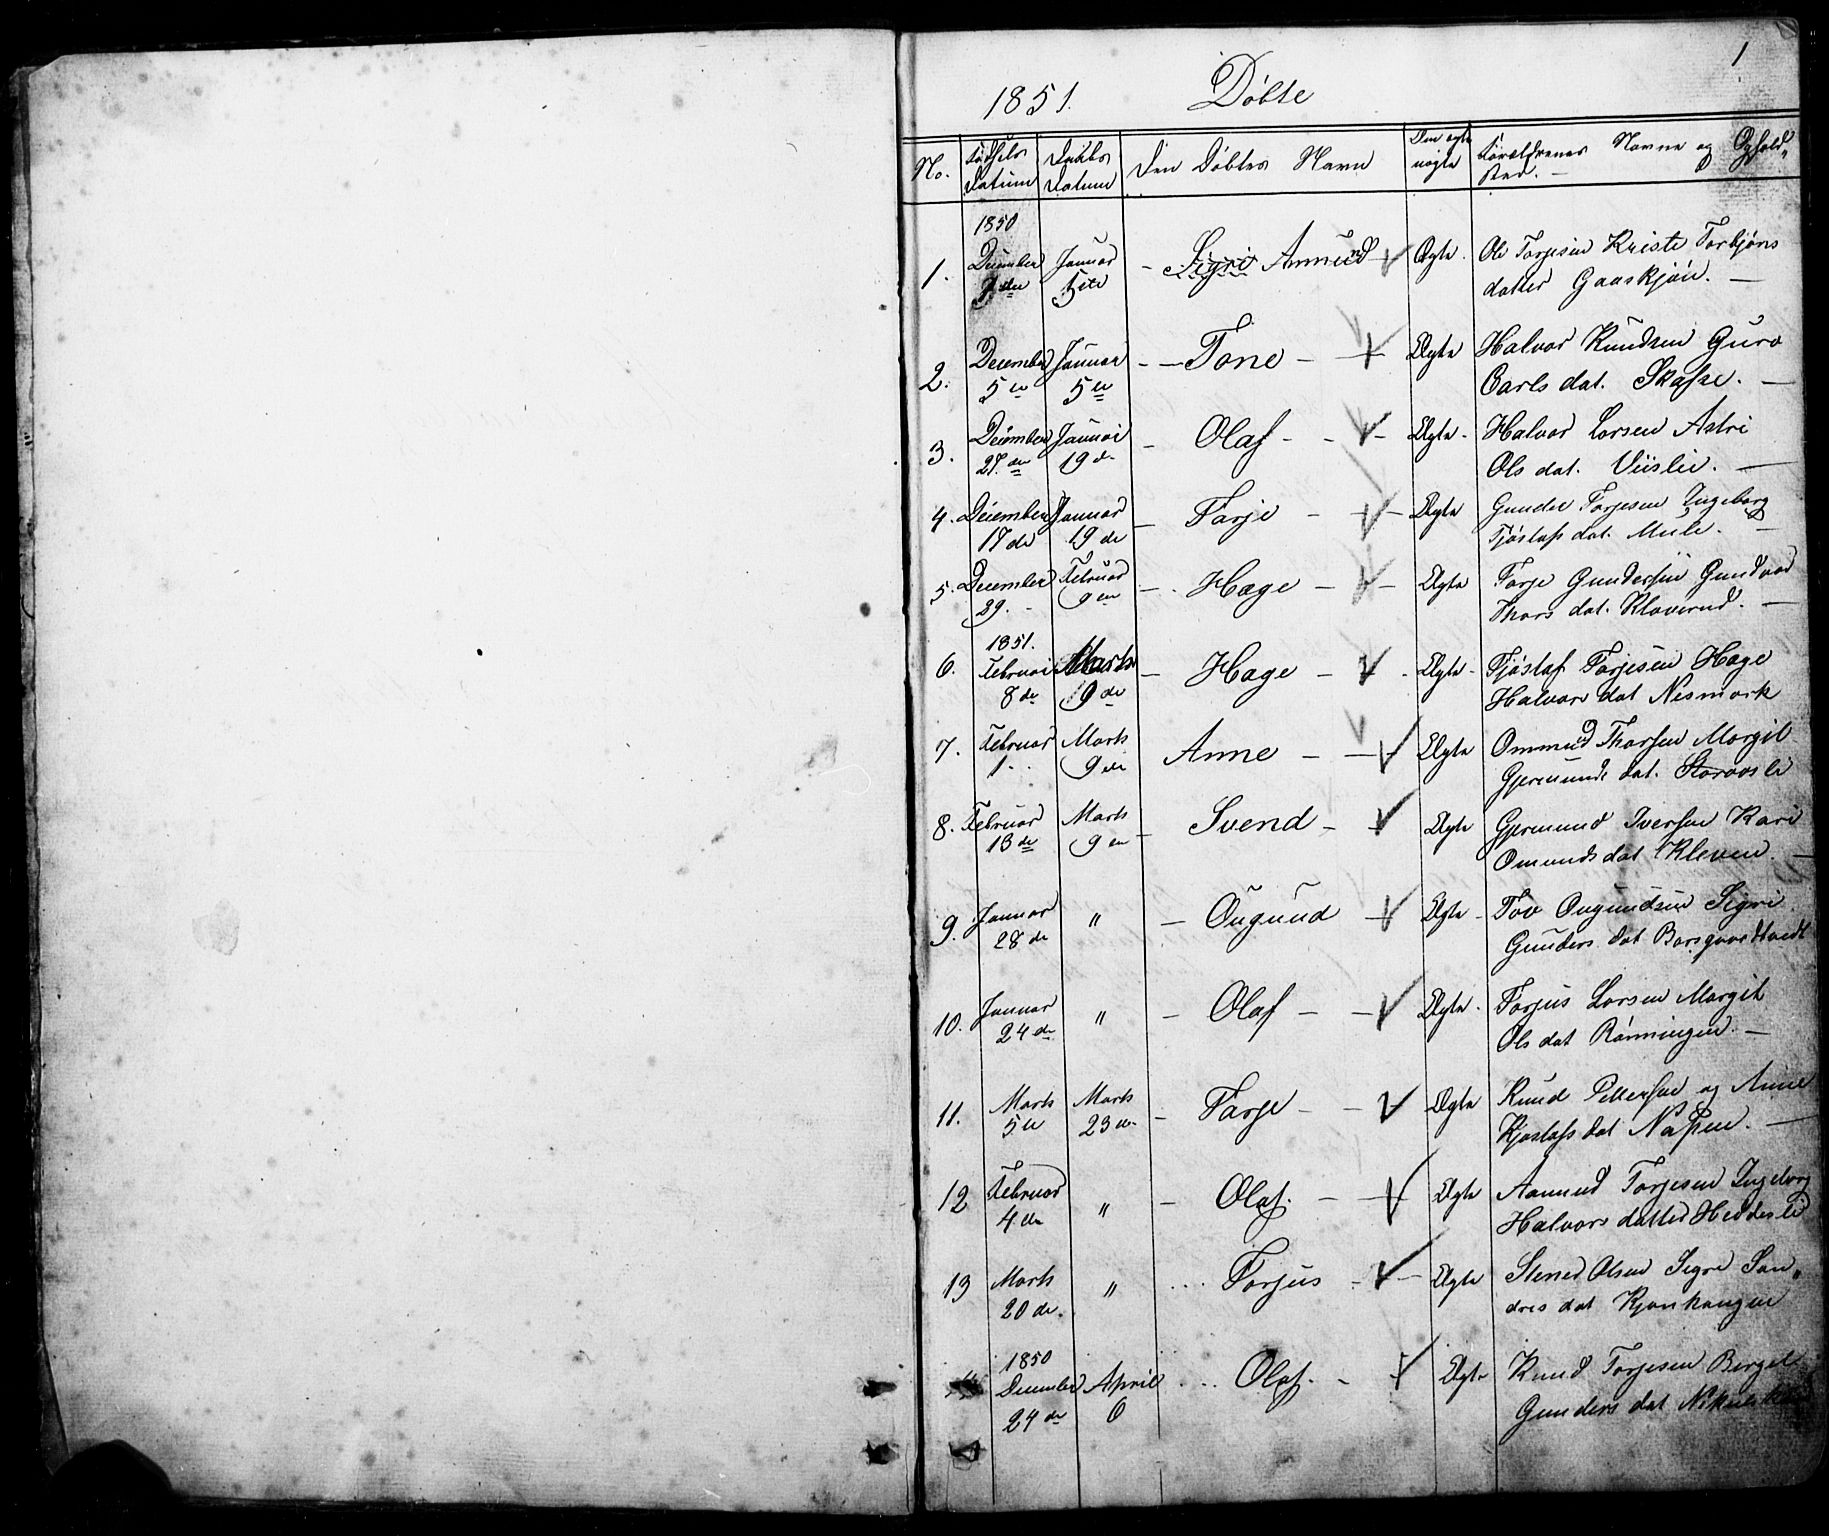 1
1851. Döbte
No. Födsels Datum Daabs Datum Den Döbtes Navn Den ægte uægte Foræeldrenes Navne og Ophold„
sted. —
1850
1. December Januar 5te - Sigri Ammund Ægte. Ole Torjesen Kriste Torbjöns
datter Gaaskjön. —
2. December 5te Januar 5te - - Tone - Ægte Halvor Knudsen Guro
Carls dat. —
3. December 27. de Januar 19 de - Olaf - - Ægte - Halvor Larsen Astri
Ols dat. Viislie. —
4. December 17 de Januar 19 de - Tarje - Ægte Gunder Torjesen Ingeborg
Tjöstafs dat. —
5. December 29. - Februar 9 en - Hæge - Ægte Tarje Gundersen Gundvor
Thors dat. Klaverud. —
1851.
6. Februar 8 de Marts 9 de - Hage - Ægte - Tjöstaf Torjesen Hage
Halvors dat Nesmark
7. Februar 1. Marts 9 de Anne - Ægte Ommund Thorsen Margit
Gjermunds dat.
8. Februar 13 de Marts 9 en - Svend - Ægte Gjermund Iversen Kari
Omunds dat Kleven. —
9. Januar 28 de " - Öugund Ægte - Tov Ougundsen Sigri
Gunders dat
10. Januar 24 de " - Olaf - Ægte - Torjus Larsen Margit
Ols dat Rönningen. —
11. Marts 5te Marts 23 de - Tarje - Ægte Knud Pettersen og Anne
dat —
12 Februar 4 de " - Olaf. - Ægte Aamund Torjesen Ingeborg
Halvors datter Heddesli
13 Marts 20 de. " ... Torjus - Ægte Stener Olsen Sigre San„
dres dat
1850
December 24 de April 6 ... Olaf. - Ægte Knud Torjesen Bergit
Gunders dat